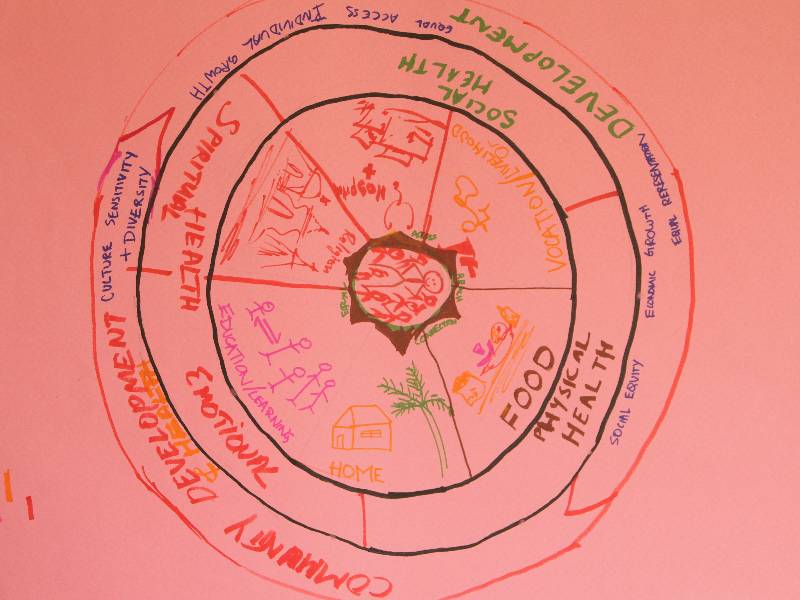 DEVELOPMENT
EQUAL ACCESS
INDIVIDUAL GROWTH
CULTURE SENSITIVITY
+ DIVERSITY
COMMUNITY DEVELOPMENT
& HEALTH
SOCIAL EQUITY
ECONOMIC GROWTH
EQUAL REPRESENTATION
SOCIAL
HEALTH
SPIRITUAL HEALTH
PHYSICAL
HEALTH
VOCATION/LIVELIHOOD
Hospital
Religion
EDUCATION/LEARNING
HOME
FOOD